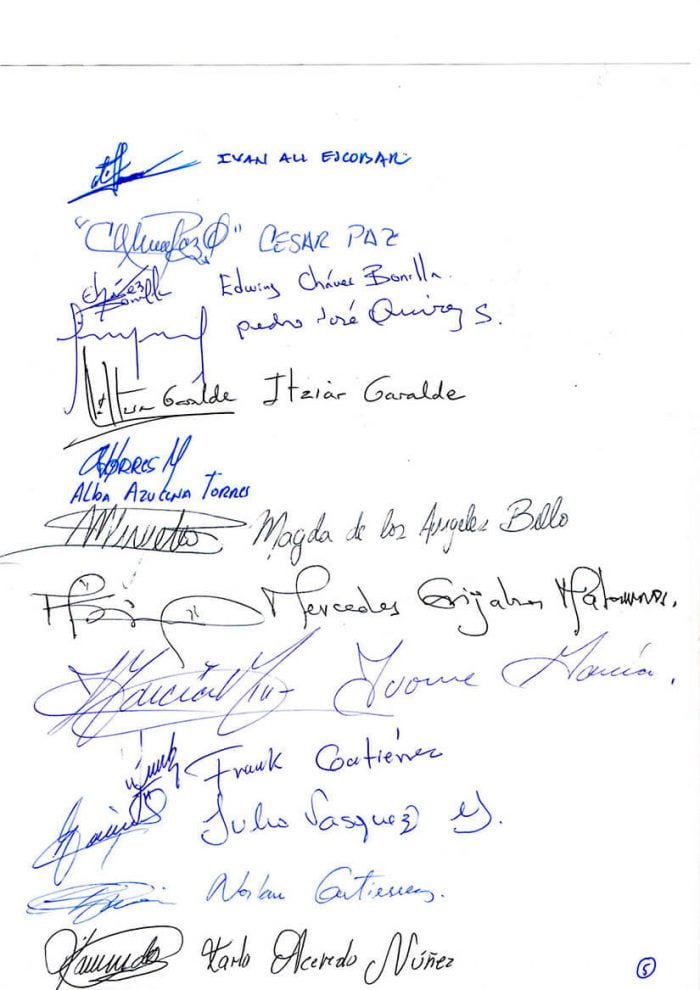 IVAN ALI ESCOBAR
CESAR PAZ
Chávez Bonilla Edwing Chávez Bonilla.
pedro José Quiroz S.
Garalde Itziar Garalde
ATorres M
Alba Azucena Torres
Magda de los Angeles Bello
Mercedes Grijalva Matamoros.
Ivonne García.
Frank Gutiérrez
Julio Vasquez M.
Gutierrez.
Karlo Acevedo Núñez
5